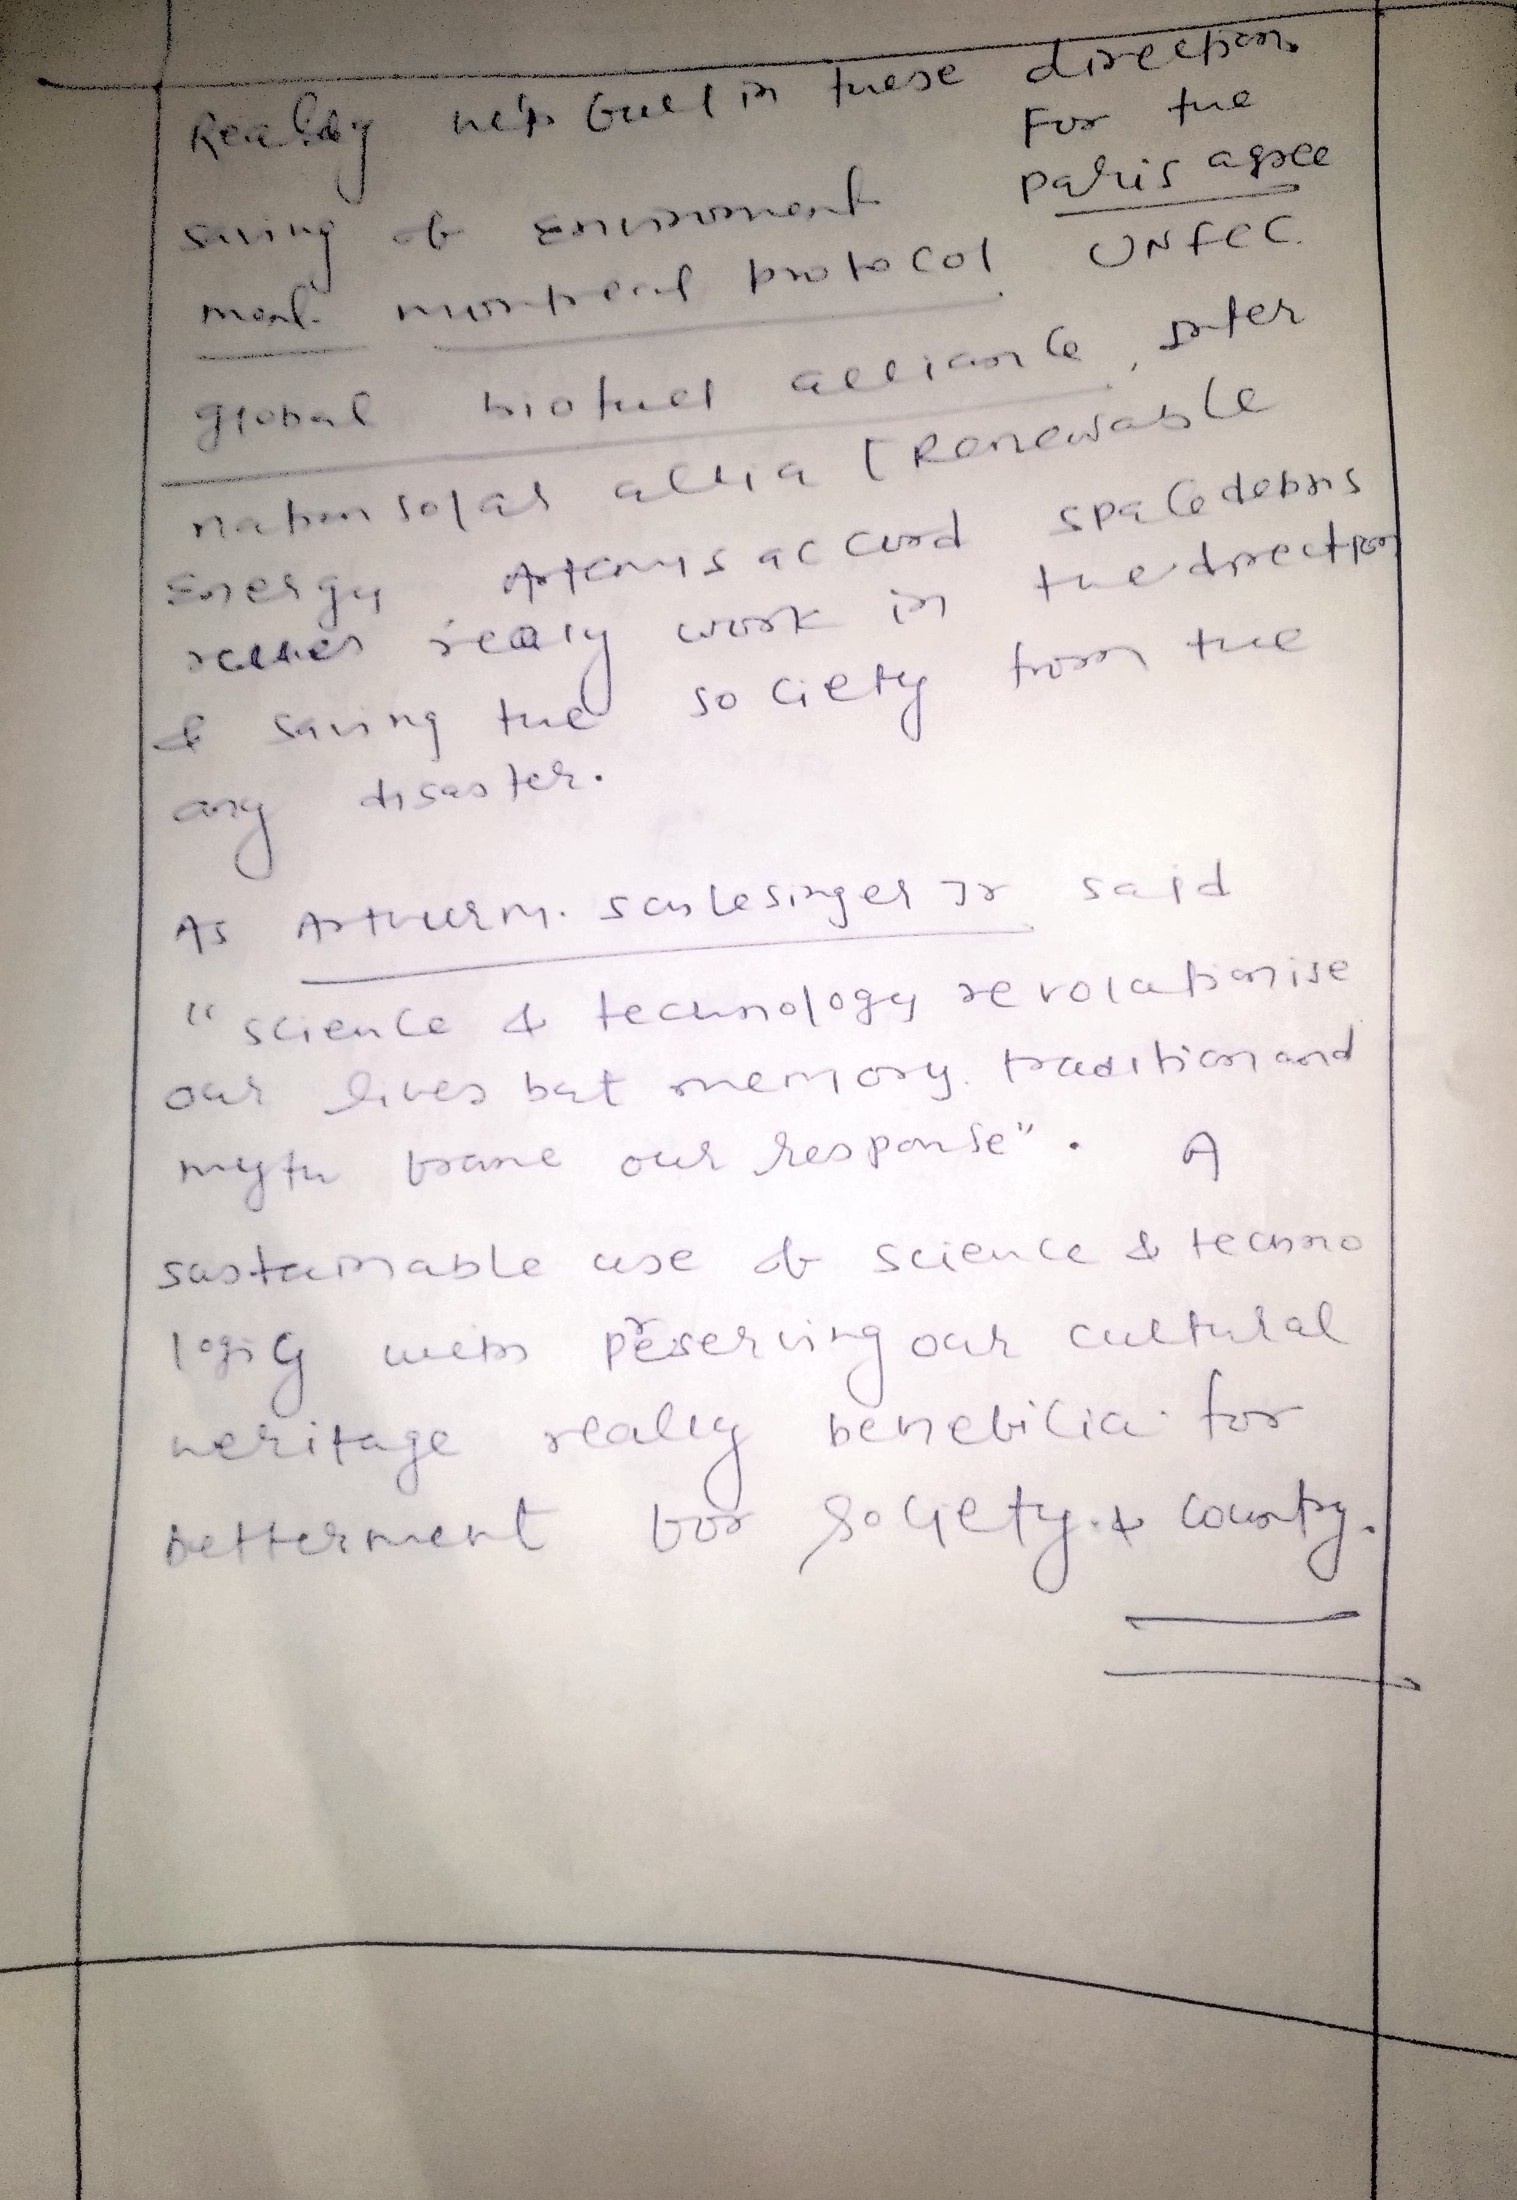 Really helpful in these direction
For the
saving of Environment paris agree
ment montreal protocol UNFCC.
global biofuel alliance, Inter
nation solar allia [Renewable
Energy, Artemis accord space debris
really work in the direction
& saving the society from the
any disaster.
As Arthur M. Schlesinger Jr said
"science & technology revolationise
our lives but memory, tradition and
myth frame our response". A
sustainable use of science & techno
logy with preserving our cultural
heritage really beneficia for
betterment for society & country.